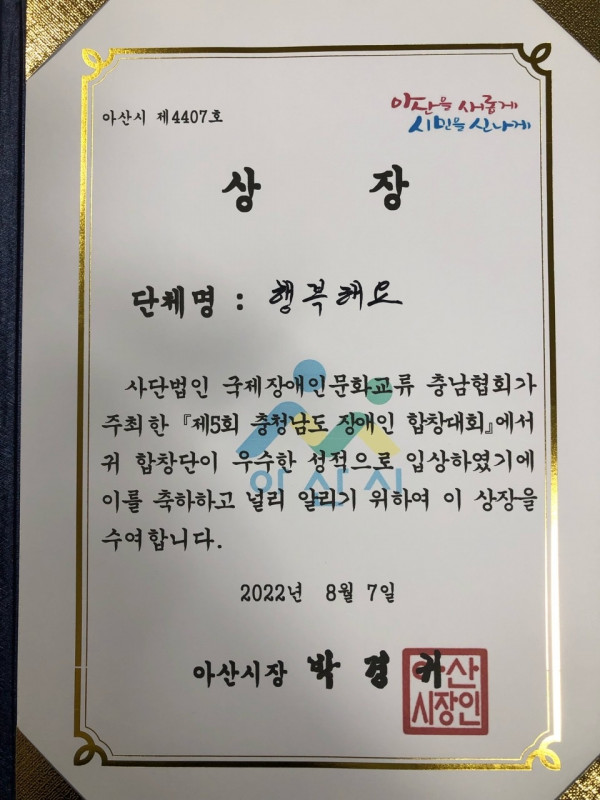 아산시 제4407호
아산을 새롭게
시민을 신나게
상 장
단체명 : 행복해요
사단법인 국제장애인문화교류 충남협회가
주최한 『제5회 충청남도 장애인 합창대회』에서
귀 합창단이 우수한 성적으로 입상하였기에
이를 축하하고 널리 알리기 위하여 이 상장을
수여합니다.
아산시
2022년 8월 7일
아산시장 박경귀
아산
시장인